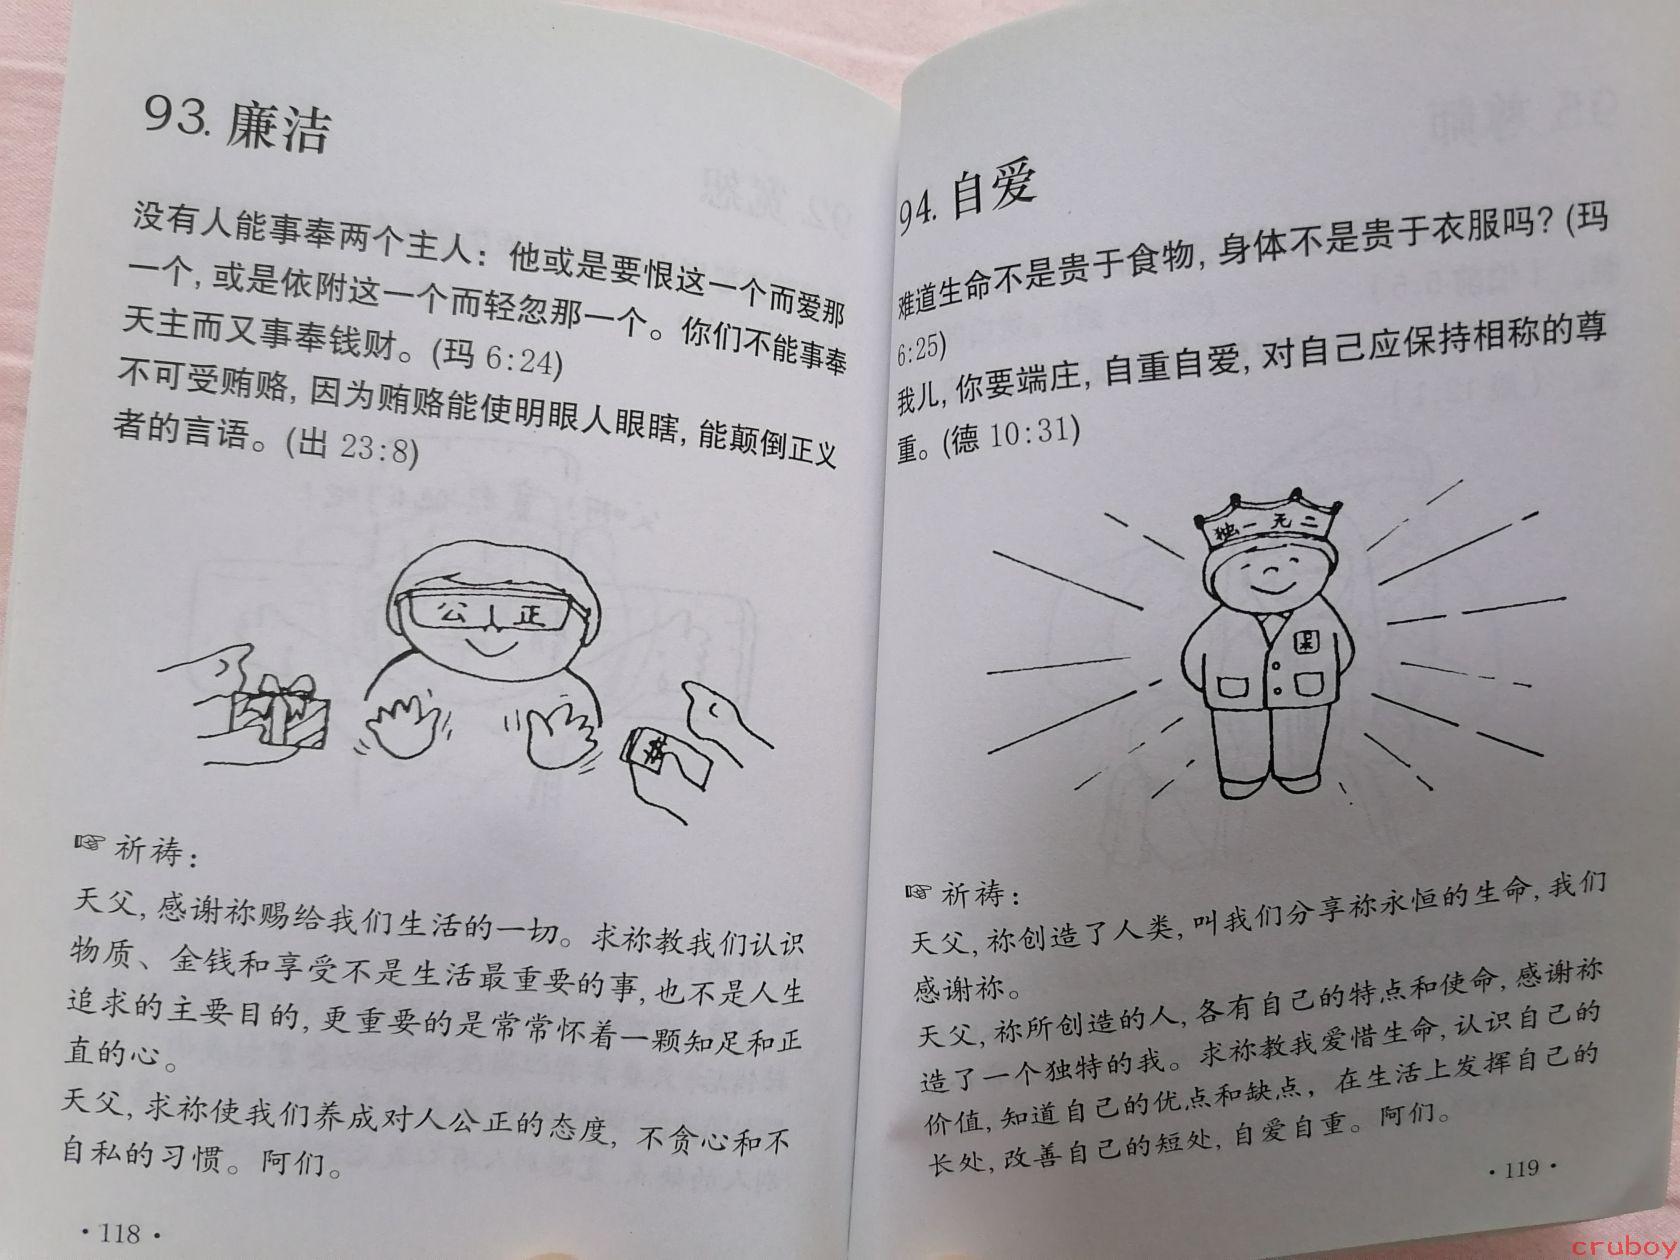 93. 廉洁
没有人能事奉两个主人：他或是要恨这一个而爱那
一个，或是依附这一个而轻忽那一个。你们不能事奉
天主而又事奉钱财。(玛 6:24)
不可受贿赂，因为贿赂能使明眼人眼瞎，能颠倒正义
者的言语。(出 23:8)
公正
$
☞ 祈祷：
天父，感谢祢赐给我们生活的一切。求祢教我们认识
物质、金钱和享受不是生活最重要的事，也不是人生
追求的主要目的，更重要的是常常怀着一颗知足和正
直的心。
天父，求祢使我们养成对人公正的态度，不贪心和不
自私的习惯。阿们。
·118·
94. 自爱
难道生命不是贵于食物，身体不是贵于衣服吗？(玛
6:25)
我儿，你要端庄，自重自爱，对自己应保持相称的尊
重。(德 10:31)
独一无二
☞ 祈祷：
天父，祢创造了人类，叫我们分享祢永恒的生命，我们
感谢祢。
天父，祢所创造的人，各有自己的特点和使命，感谢祢
造了一个独特的我。求祢教我爱惜生命，认识自己的
价值，知道自己的优点和缺点，在生活上发挥自己的
长处，改善自己的短处，自爱自重。阿们。
·119·
cruboy